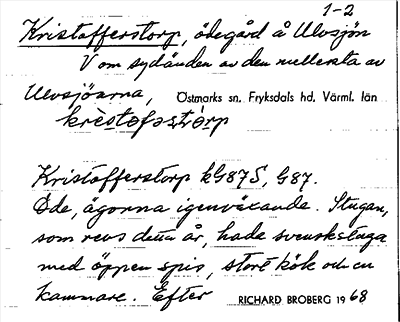 1-2
Kristofferstorp, ödegård å Ulvsjön
V om sydänden av den mellersta av
Ulvsjöarna, Östmarks sn. Fryksdals hd. Värml. län
Kristofferstorp kG87S, G87.
Öde, ägorna igenväxande. Stugan,
som revs detta år, hade svenskstuga
med öppen spis, stort kök och en
kammare. Efter RICHARD BROBERG 1968